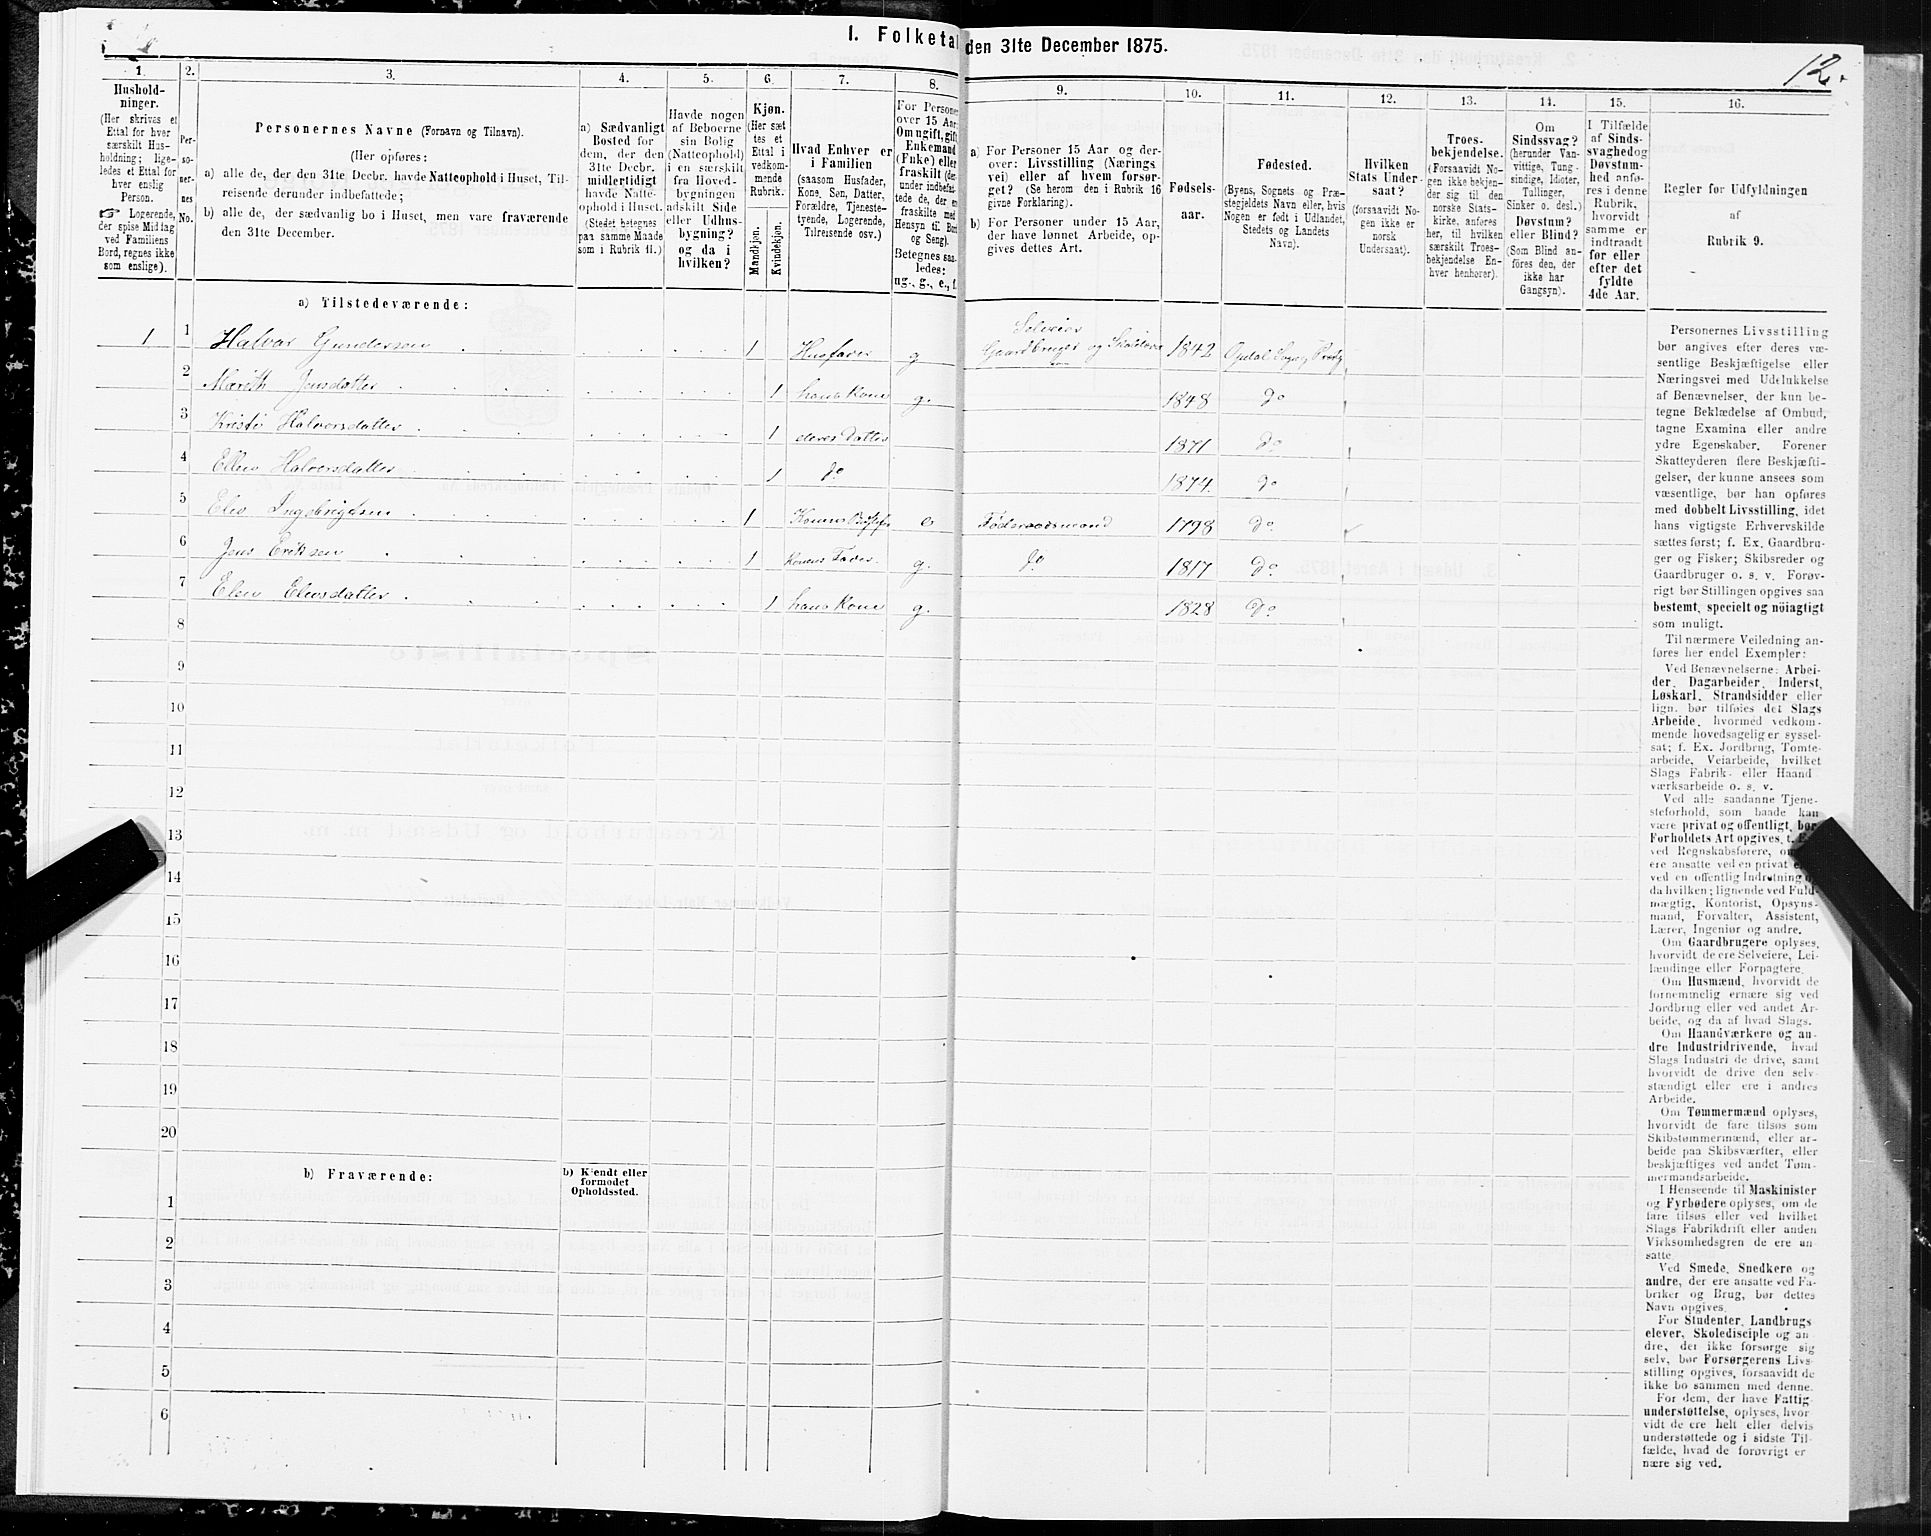 I. Folketal den 31te December 1875.
12.
1.
Hushold-
ninger.
(Her skrives et
Ettal for hver
særskilt Hus-
holdning; lige-
ledes et Ettal for
hver enslig
Person.
Logerende,
der spise Middag
ved Familiens
Bord, regnes ikke
som enslige).
2.
Per-
so-
ner-
nes
No.
3.
Personernes Navne (Fornavn og Tilnavn).
(Her opføres:
a) alle de, der den 31te Decbr. havde Natteophold i Huset, Til-
reisende derunder indbefattede;
b) alle de, der sædvanlig bo i Huset, men vare fraværende
den 31te December.
4.
a) Sædvanligt
Bosted for
dem, der den
31te Decbr.
midlertidigt
havde Natte-
ophold i Huset.
(Stedet betegnes
paa samme Maade
som i Rubrik 11.)
5.
Havde nogen
af Beboerne
sin Bolig
(Natteophold)
i en særskilt
fra Hoved-
bygningen
adskilt Side
eller Udhus-
bygning?
og da i
hvilken?
6.
Kjøn.
(Her sæt-
tes et
Ettal i
vedkom-
mende
Rubrik.
Mandkjøn.
Kvindekjøn.
7.
Hvad Enhver er
i Familien
(saasom Husfader,
Kone, Søn, Datter,
Forældre, Tjeneste-
tyende, Logerende,
Tilreisende osv.)
8.
For Personer
over 15 Aar:
Om ugift, gift,
Enkemand
(Enke) eller
fraskilt (der-
under indbefat-
tede de, der ere
fraskilte med
Hensyn til Bord
og Seng).
Betegnes saa-
ledes:
ug., g., e., f.
9.
a) For Personer 15 Aar og der-
over: Livsstilling (Nærings-
vei) eller af hvem forsør-
get? (Se herom den i Rubrik 16
givne Forklaring).
b) For Personer under 15 Aar,
der have lønnet Arbeide, op-
gives dettes Art.
10.
Fødsels-
aar.
11.
Fødested.
(Byens, Sognets og Præ-
stegjeldets Navn eller, hvis
Nogen er født i Udlandet,
Stedets og Landets
Navn).
12.
Hvilken
Stats Under-
saat?
(forsaavidt No-
gen ikke er
norsk
Undersaat).
13.
Troes-
bekjendelse.
(Forsaavidt No-
gen ikke bekjen-
der sig til den
norske Stats-
kirke, anføres
her, til hvilken
særskilt Troes-
bekjendelse En-
hver henhører).
14.
Om
Sindssvag?
(herunder Van-
vittige, Tung-
sindige, Idioter,
Tullinger,
Sinker o. desl.)
Døvstum?
eller Blind?
(Som Blind an-
føres den, der
ikke har
Gangsyn).
15.
I Tilfælde
af Sinds-
svaghed og
Døvstum-
hed anfø-
res i denne
Rubrik,
hvorvidt
samme er
indtraadt
før eller
efter det
fyldte
4de Aar.
16.
Regler for Udfyldningen
af
Rubrik 9.
a) Tilstedeværende:
1 1 Halvor Gundersen 1 Husfader g Selveier Gaardbruger og 1842 Opdal Sogn
2 Marith Jensdatter 1 hans Kone g. 1848 do
3 Kristi Halvorsdatter 1 deres Datter 1871 do
4 Ellen Halvorsdatter 1 do 1874. do
5 Elev Ingebrigtsen 1 Konens e Føderaadsmand 1798 do
6 Jens Eriksen 1 Konens Fader. g. do 1817 do
7 Elen Elevsdatter 1 hans Kone g. 1828 do
8
9
10
11
12
13
14
15
16
17
18
19
20
b) Fraværende:
b) Kjendt eller
formodet
Opholdssted.
1
2
3
4
5
6
Personernes Livsstilling
bør angives efter deres væ-
sentlige Beskjæftigelse eller
Næringsvei med Udelukkelse
af Benævnelser, der kun be-
tegne Beklædelse af Ombud,
tagne Examina eller andre
ydre Egenskaber. Forener
Skatteyderen flere Beskjæfti-
gelser, der kunne ansees som
væsentlige, bør han opføres
med dobbelt Livsstilling, idet
hans vigtigste Erhvervskilde
sættes først; f. Ex. Gaardbru-
ger og Fisker; Skibsreder og
Gaardbruger o. s. v. Forøv-
rigt bør Stillingen opgives saa
bestemt, specielt og nöiagtigt
som muligt.
Til nærmere Veiledning an-
føres her endel Exempler:
Ved Benævnelserne: Arbei-
der, Dagarbeider, Inderst,
Løskarl, Strandsidder eller
lign. bør tilføies det Slags
Arbeide, hvormed vedkom-
mende hovedsagelig er syssel-
sat; f. Ex. Jordbrug, Tomte-
arbeide, Veiarbeide, hvilket
Slags Fabrik- eller Haand-
værksarbeide o. s. v.
Ved alle saadanne Tjene-
steforhold, som baade kan
være privat og offentligt, bør
Forholdets Art opgives, t.
ved Regnskabsførere,
ere ansatte ved en privat
ved en offentlig Indretning
da hvilken; lignende ved Fuld-
mægtig, Kontorist, Opsyns-
mand, Forvalter, Assistent,
Lærer, Ingeniør og andre.
Om Gaardbrugere oplyses,
hvorvidt de ere Selveiere, Lei-
lændinge eller Forpagtere.
Om Husmænd, hvorvidt de
fornemmelig ernære sig ved
Jordbrug eller ved andet Ar-
beide, og da af hvad Slags.
Om Haandværkere og an-
dre Industridrivende, hvad
Slags Industri de drive, samt
hvorvidt de drive den selv-
stændigt eller ere i andres
Arbeide.
Om Tømmermænd oplyses,
hvorvidt de fare tilsøs som
Skibstømmermænd, eller ar-
beide paa Skibsværfter, eller
beskjæftiges ved andet Tøm-
mermandsarbeide.
I Henseende til Maskinister
og Fyrbødere oplyses, om de
fare tilsøs eller ved hvilket
Slags Fabrikdrift eller anden
Virksomhedsgren de ere an-
satte.
Ved Smede, Snedkere og
andre, der ere ansatte ved Fa-
briker og Brug, bør dettes
Navn opgives.
For Studenter, Landbrugs-
elever, Skoledisciple og an-
dre, der ikke forsørge sig
selv, bør Forsørgerens Livs-
stilling opgives, forsaavidt de
ikke bo sammen med denne.
For dem, der have Fattig-
understøttelse, oplyses, hvor-
vidt de ere helt eller delvis
understøttede og i sidste Til-
fælde, hvad de forøvrigt er-
nære sig ved.